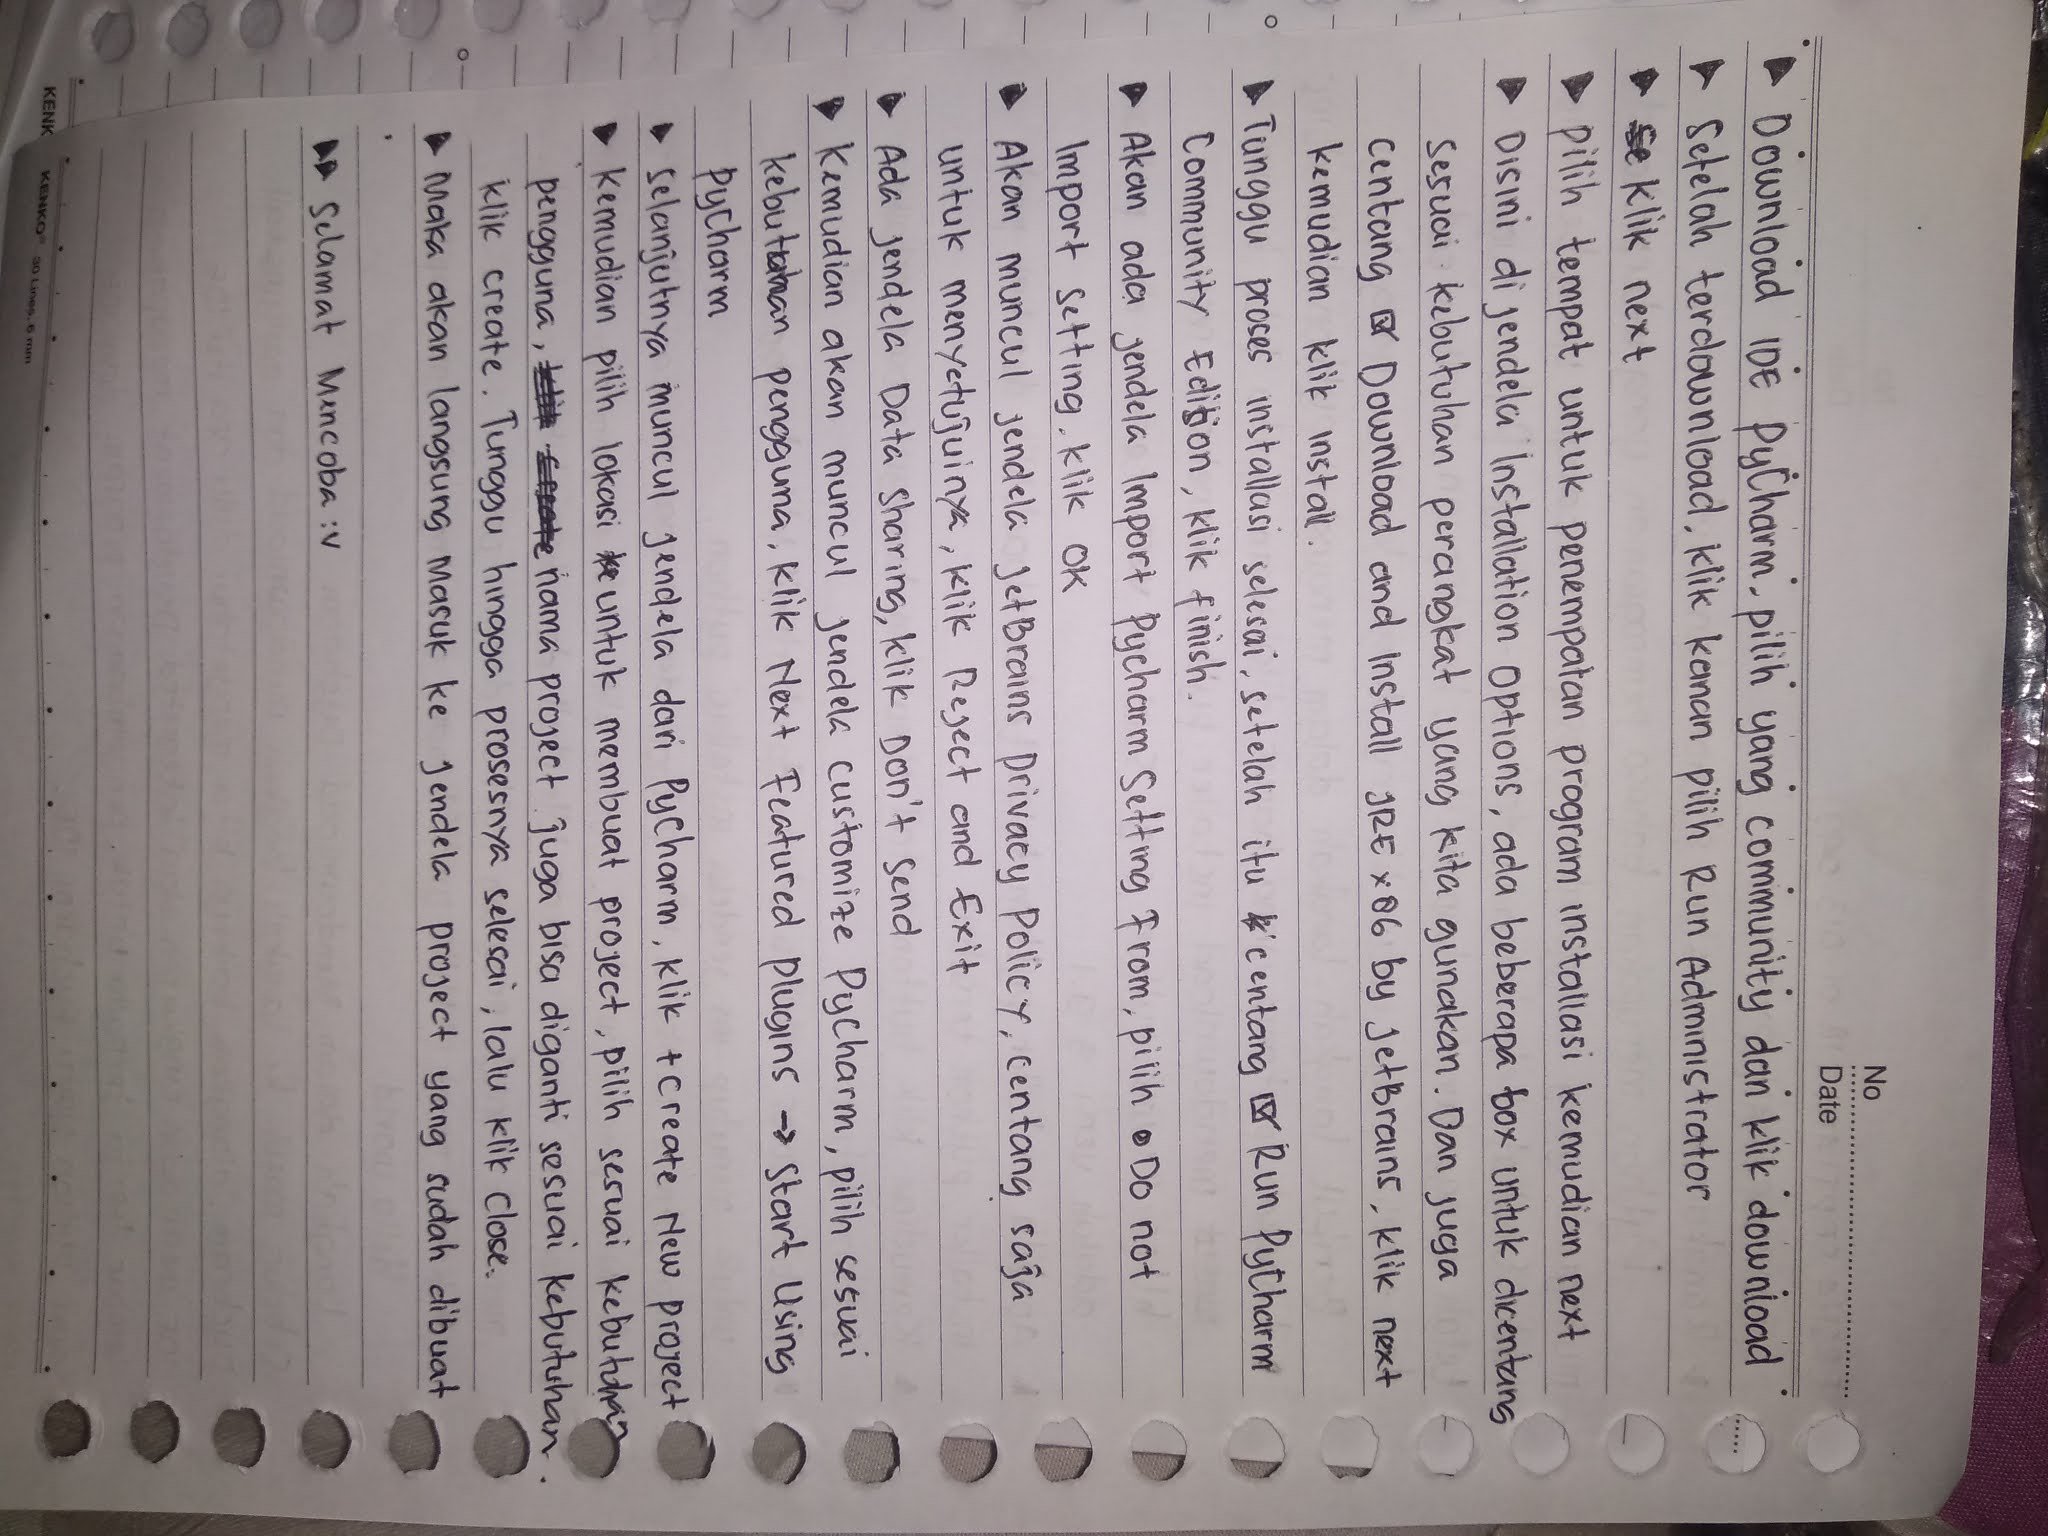 No
Date
▶ Download IDE PyCharm, pilih yang community dan klik download
▶ Setelah terdownload, klik kanan pilih Run Administrator
▶ klik next
▶ pilih tempat untuk penempatan program installasi kemudian next
▶ Disini di jendela Installation Options, ada beberapa box untuk dicentang
sesuai kebutuhan perangkat yang kita gunakan. Dan juga
centang ☑ Download and Install JRE x86 by JetBrains, klik next
kemudian klik install.
▶ Tunggu proses installasi selesai, setelah itu centang ☑ Run PyCharm
Community Edition, klik finish.
▶ Akan ada jendela Import Pycharm Setting From, pilih • Do not
Import Setting. klik OK
▶ Akan muncul jendela JetBrains Privacy Policy, centang saja
untuk menyetujuinya, klik Reject and Exit
▶ Ada jendela Data Sharing, klik Don't Send
▶ Kemudian akan muncul jendela customize PyCharm, pilih sesuai
kebutuhan pengguna, klik Next Featured plugins → Start Using
pycharm
▶ selanjutnya muncul jendela dari PyCharm, klik + Create New project
▶ kemudian pilih lokasi untuk membuat project, pilih sesuai kebutuhan
pengguna, nama project juga bisa diganti sesuai kebutuhan.
klik create. Tunggu hingga prosesnya selesai, lalu klik Close.
▶ Maka akan langsung Masuk ke jendela project yang sudah dibuat
▶▶ Selamat Mencoba :v
KENKO® 30 Lines, 6 mm
KENK